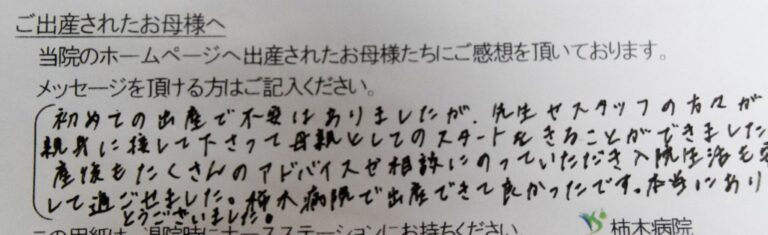 ご出産されたお母様へ
当院のホームページへ出産されたお母様たちにご感想を頂いております。
メッセージを頂ける方はご記入ください。
初めての出産で不安はありましたが、先生やスタッフの方々が
親身に接して下さって母親としてのスタートをきることができました
産後もたくさんのアドバイスや相談にのっていただき入院生活も安
して過ごせました。柿木病院で出産できて良かったです。本当にあり
とうございました。
この用紙は、退院時にナースステーションにお持ちください
柿木病院